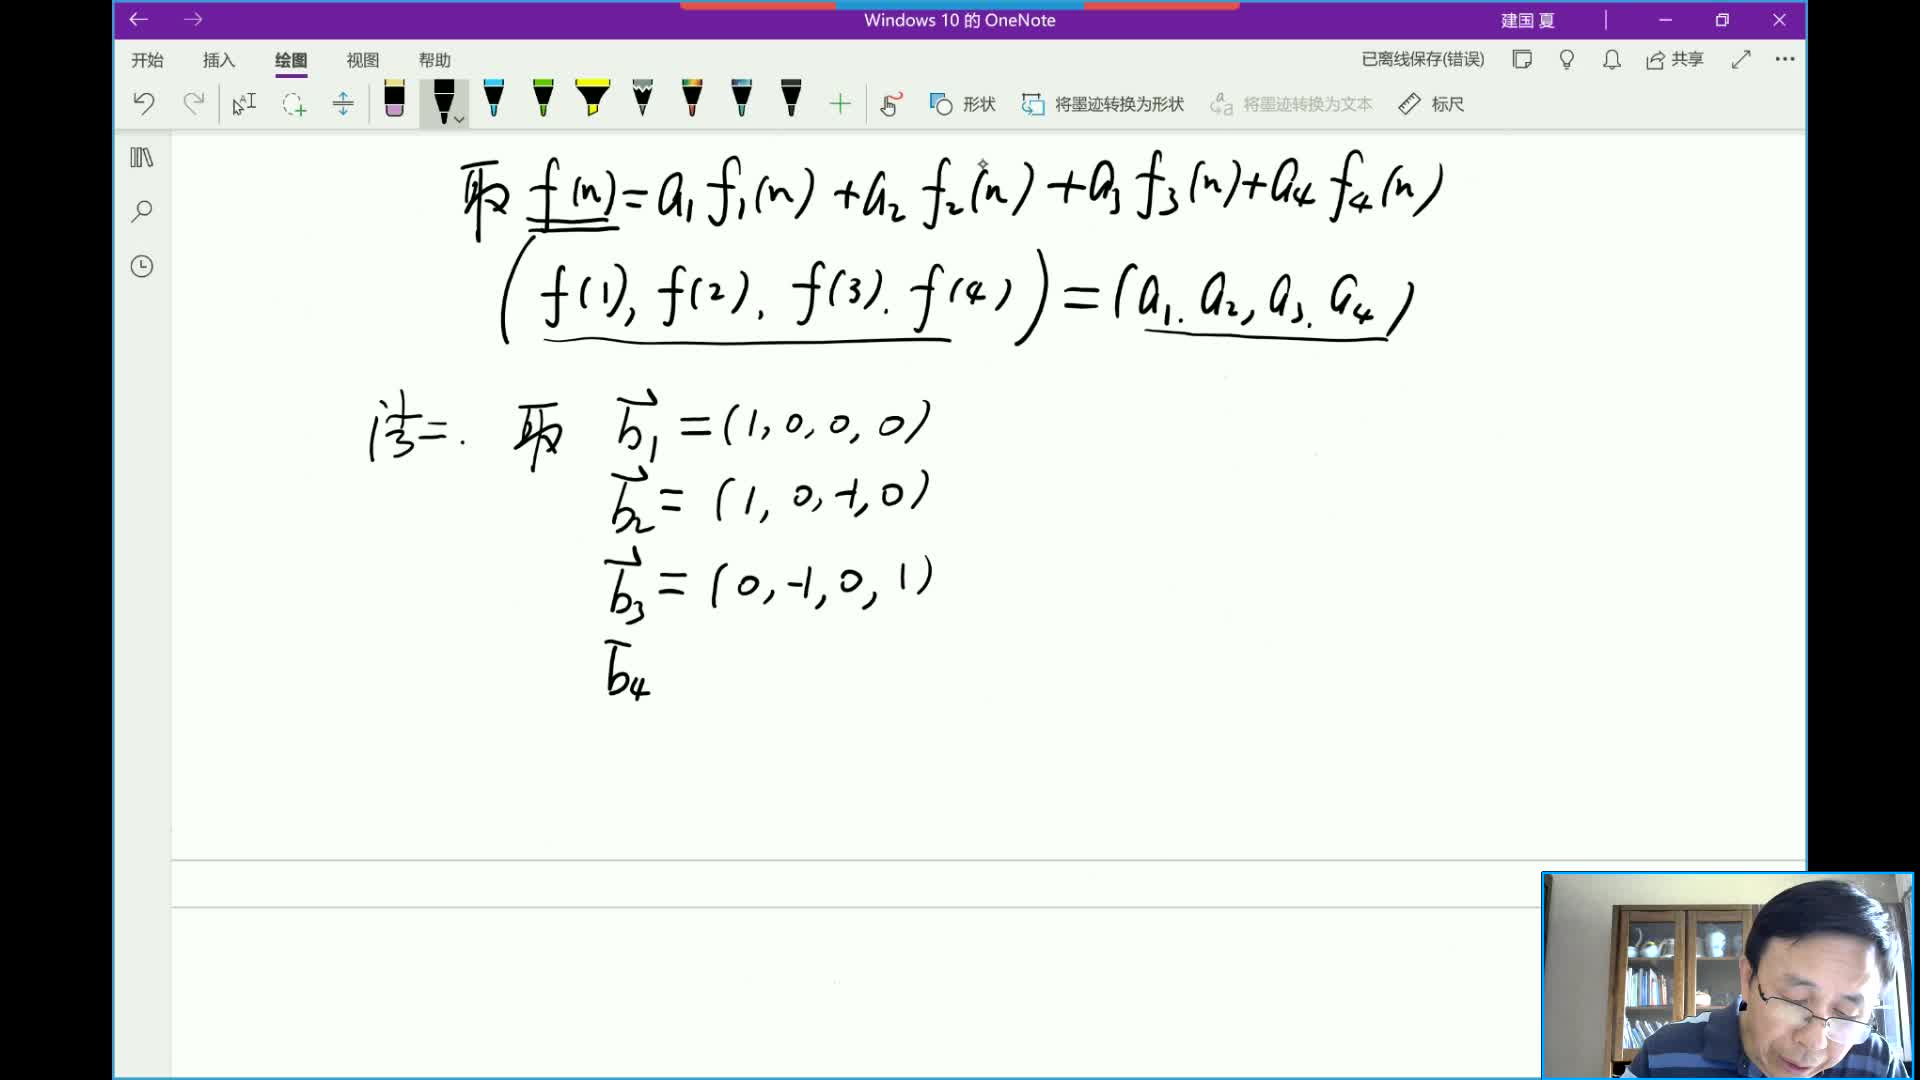 Windows 10 的 OneNote
建国 夏
开始 插入 绘图 视图 帮助
已离线保存(错误) 共享
形状 将墨迹转换为形状 将墨迹转换为文本 标尺
取 f(n)=a₁f₁(n)+a₂f₂(n)+a₃f₃(n)+a₄f₄(n)
(f(1), f(2), f(3), f(4))=(a₁, a₂, a₃, a₄)
法二. 取 b⃗₁=(1,0,0,0)
b⃗₂=(1,0,-1,0)
b⃗₃=(0,-1,0,1)
b₄